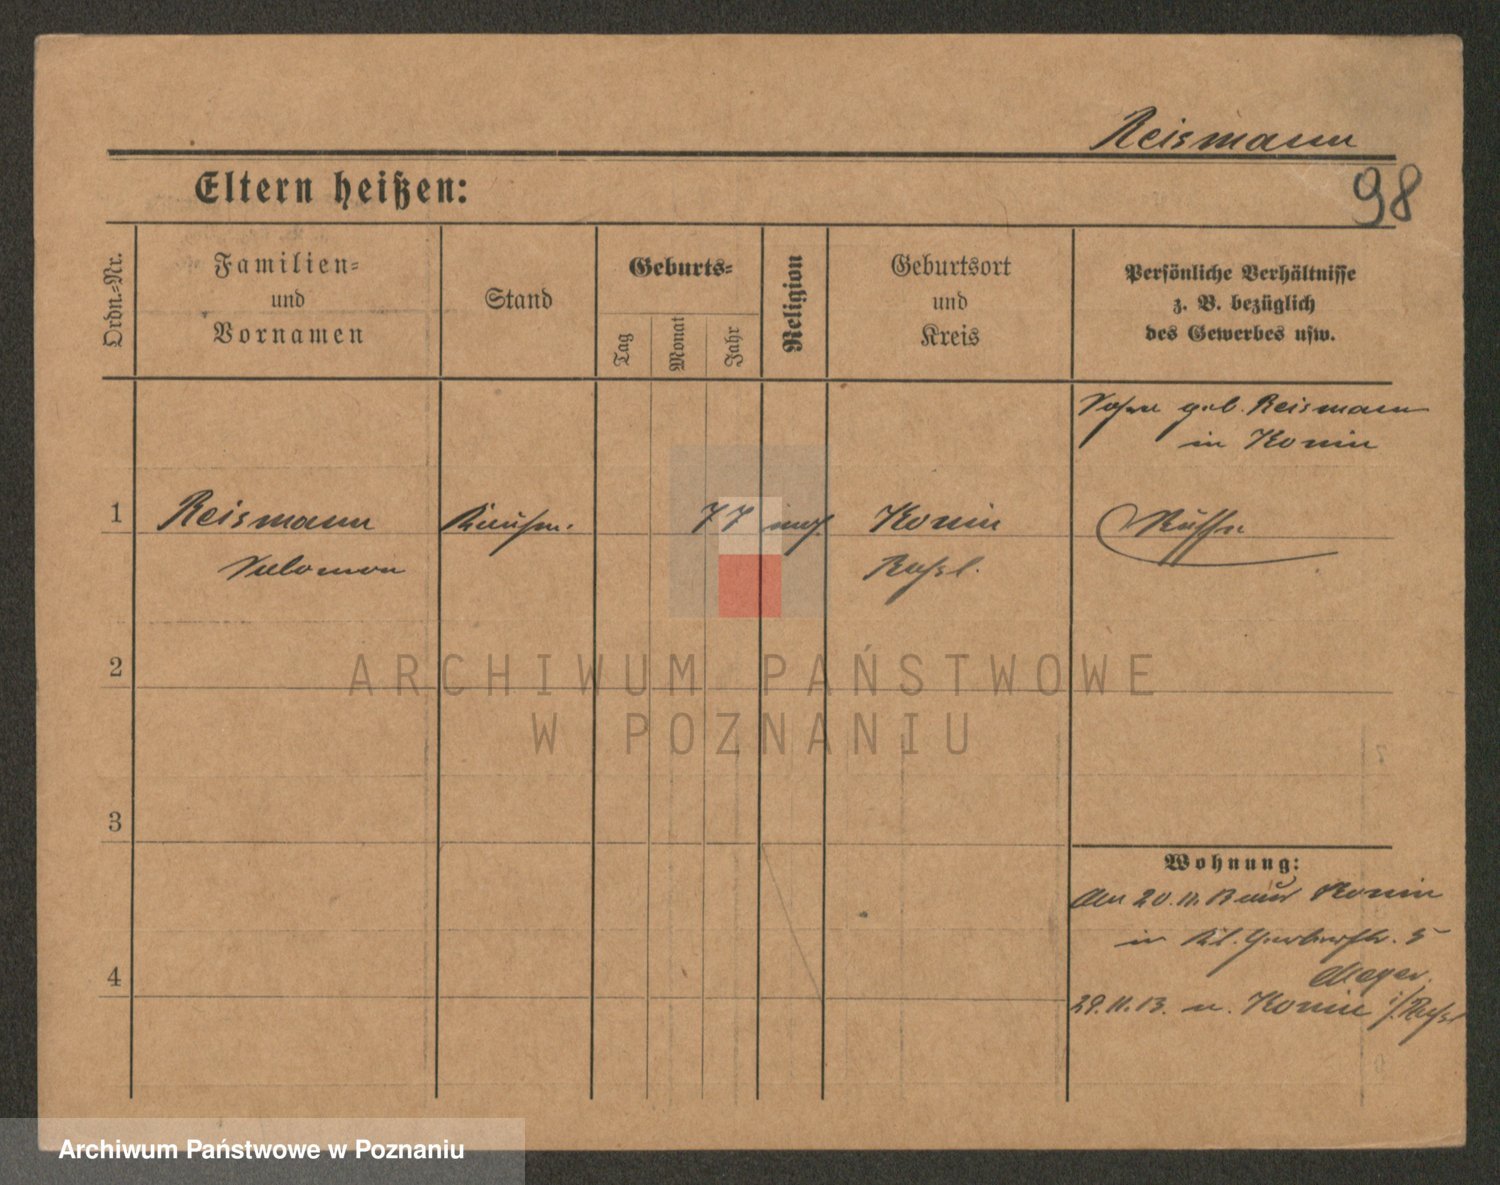 Reismann
98
Eltern heißen:
Ordn.-Nr.
Familien-
und
Vornamen
Stand
Geburts-
Tag
Monat
Jahr
Religion
Geburtsort
und
Kreis
Persönliche Verhältnisse
z. B. bezüglich
des Gewerbes usw.
geb. Reismann
in Konin
1
Reismann
Kaufm.
77
mos.
Konin
Russe
Salomon
Russl.
2
3
4
Wohnung:
Am 20.11.13 aus Konin
in Kl. Gerberstr. 5
Meyer.
29.11.13. n. Konin i/Russl
ARCHIWUM PAŃSTWOWE
W POZNANIU
Archiwum Państwowe w Poznaniu